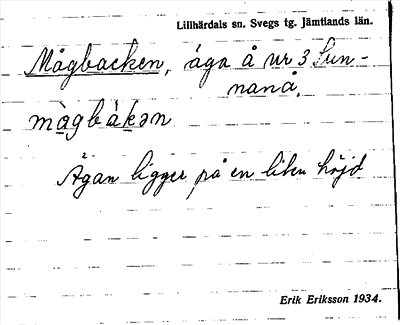 Lillhärdals sn. Svegs tg. Jämtlands län.
Mågbacken, äga å nr 3 Sun-
nanå.
màgbàkən
Ägan ligger på en liten höjd
Erik Eriksson 1934.